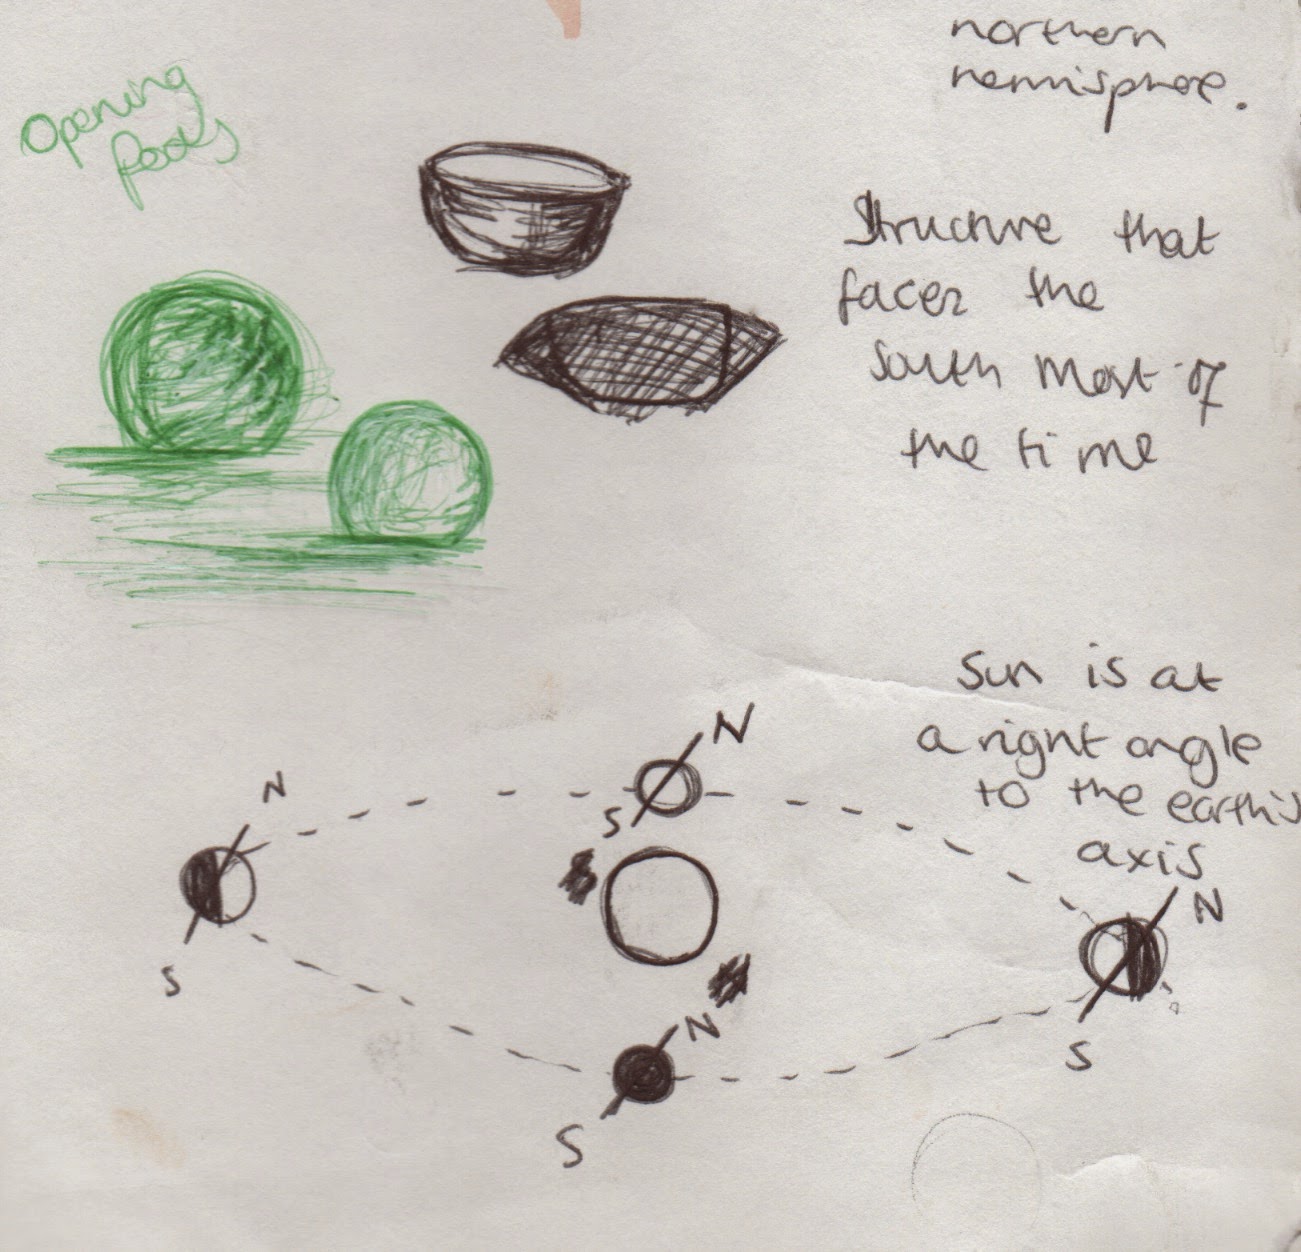 northern
hemisphere.
Opening
Pods
Structure that
faces the
South most of
the time
Sun is at
a right angle
to the earth's
axis
N
N
S
N
S
N
S
S